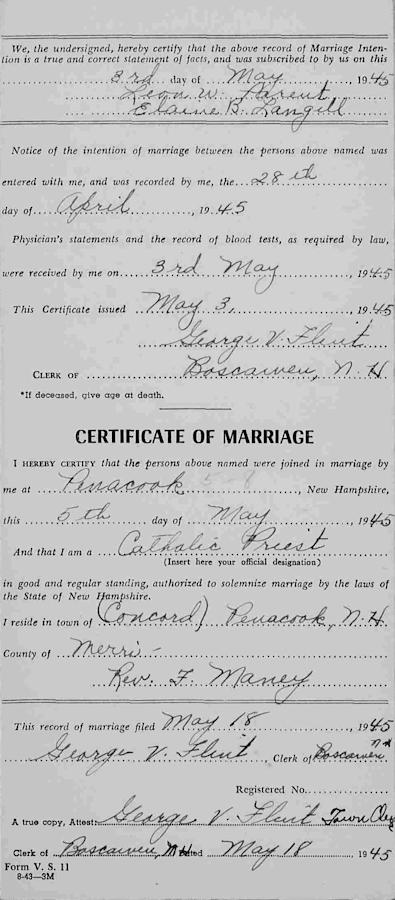 We, the undersigned, hereby certify that the above record of Marriage Inten-
tion is a true and correct statement of facts, and was subscribed to by us on this
3rd day of May, 1945
Leon W. Parent
Elaine B. Langill
Notice of the intention of marriage between the persons above named was
entered with me, and was recorded by me, the 28th
day of April, 1945
Physician's statements and the record of blood tests, as required by law,
were received by me on 3rd May, 1945
This Certificate issued May 3, 1945
George V. Flint
CLERK OF Boscawen, N. H
*If deceased, give age at death.
CERTIFICATE OF MARRIAGE
I HEREBY CERTIFY that the persons above named were joined in marriage by
me at Penacook, New Hampshire,
this 5th day of May, 1945
And that I am a Catholic Priest
(Insert here your official designation)
in good and regular standing, authorized to solemnize marriage by the laws of
the State of New Hampshire.
I reside in town of (Concord) Penacook, N. H.
County of Merri-
Rev. F. Maney
This record of marriage filed May 18, 1945
George V. Flint, Clerk of Boscawen N H
Registered No.
A true copy, Attest: George V. Flint Town
Clerk of Boscawen, N H Dated May 18 1945
Form V. S. 11
8-43—3M